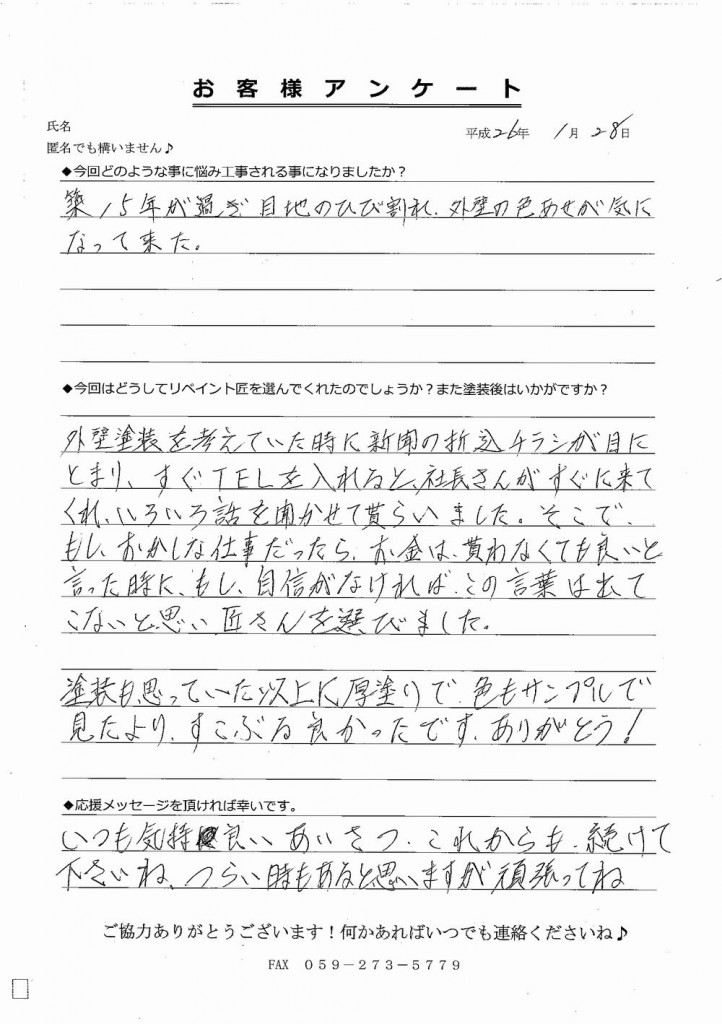 お客様アンケート
氏名
平成26年 1月28日
匿名でも構いません♪
◆今回どのような事に悩み工事される事になりましたか?
築15年が過ぎ目地のひび割れ、外壁の色あせが気に
なって来た。
◆今回はどうしてリペイント匠を選んでくれたのでしょうか?また塗装後はいかがですか?
外壁塗装を考えていた時に新聞の折込チラシが目に
とまり、すぐTELを入れると、社長さんがすぐに来て
くれ、いろいろ話を聞かせて貰らいました。そこで、
もし、おかしな仕事だったら、お金は、貰わなくても良いと
言った時に、もし、自信がなければ、この言葉は出て
こないと思い匠さんを選びました。
塗装も思っていた以上に厚塗りで、色もサンプルで
見たより、すこぶる良かったです、ありがとう!
◆応援メッセージを頂ければ幸いです。
いつも気持良いあいさつ、これからも、続けて
下さいね、つらい時もあると思いますが頑張ってね
ご協力ありがとうございます!何かあればいつでも連絡くださいね♪
FAX 059-273-5779